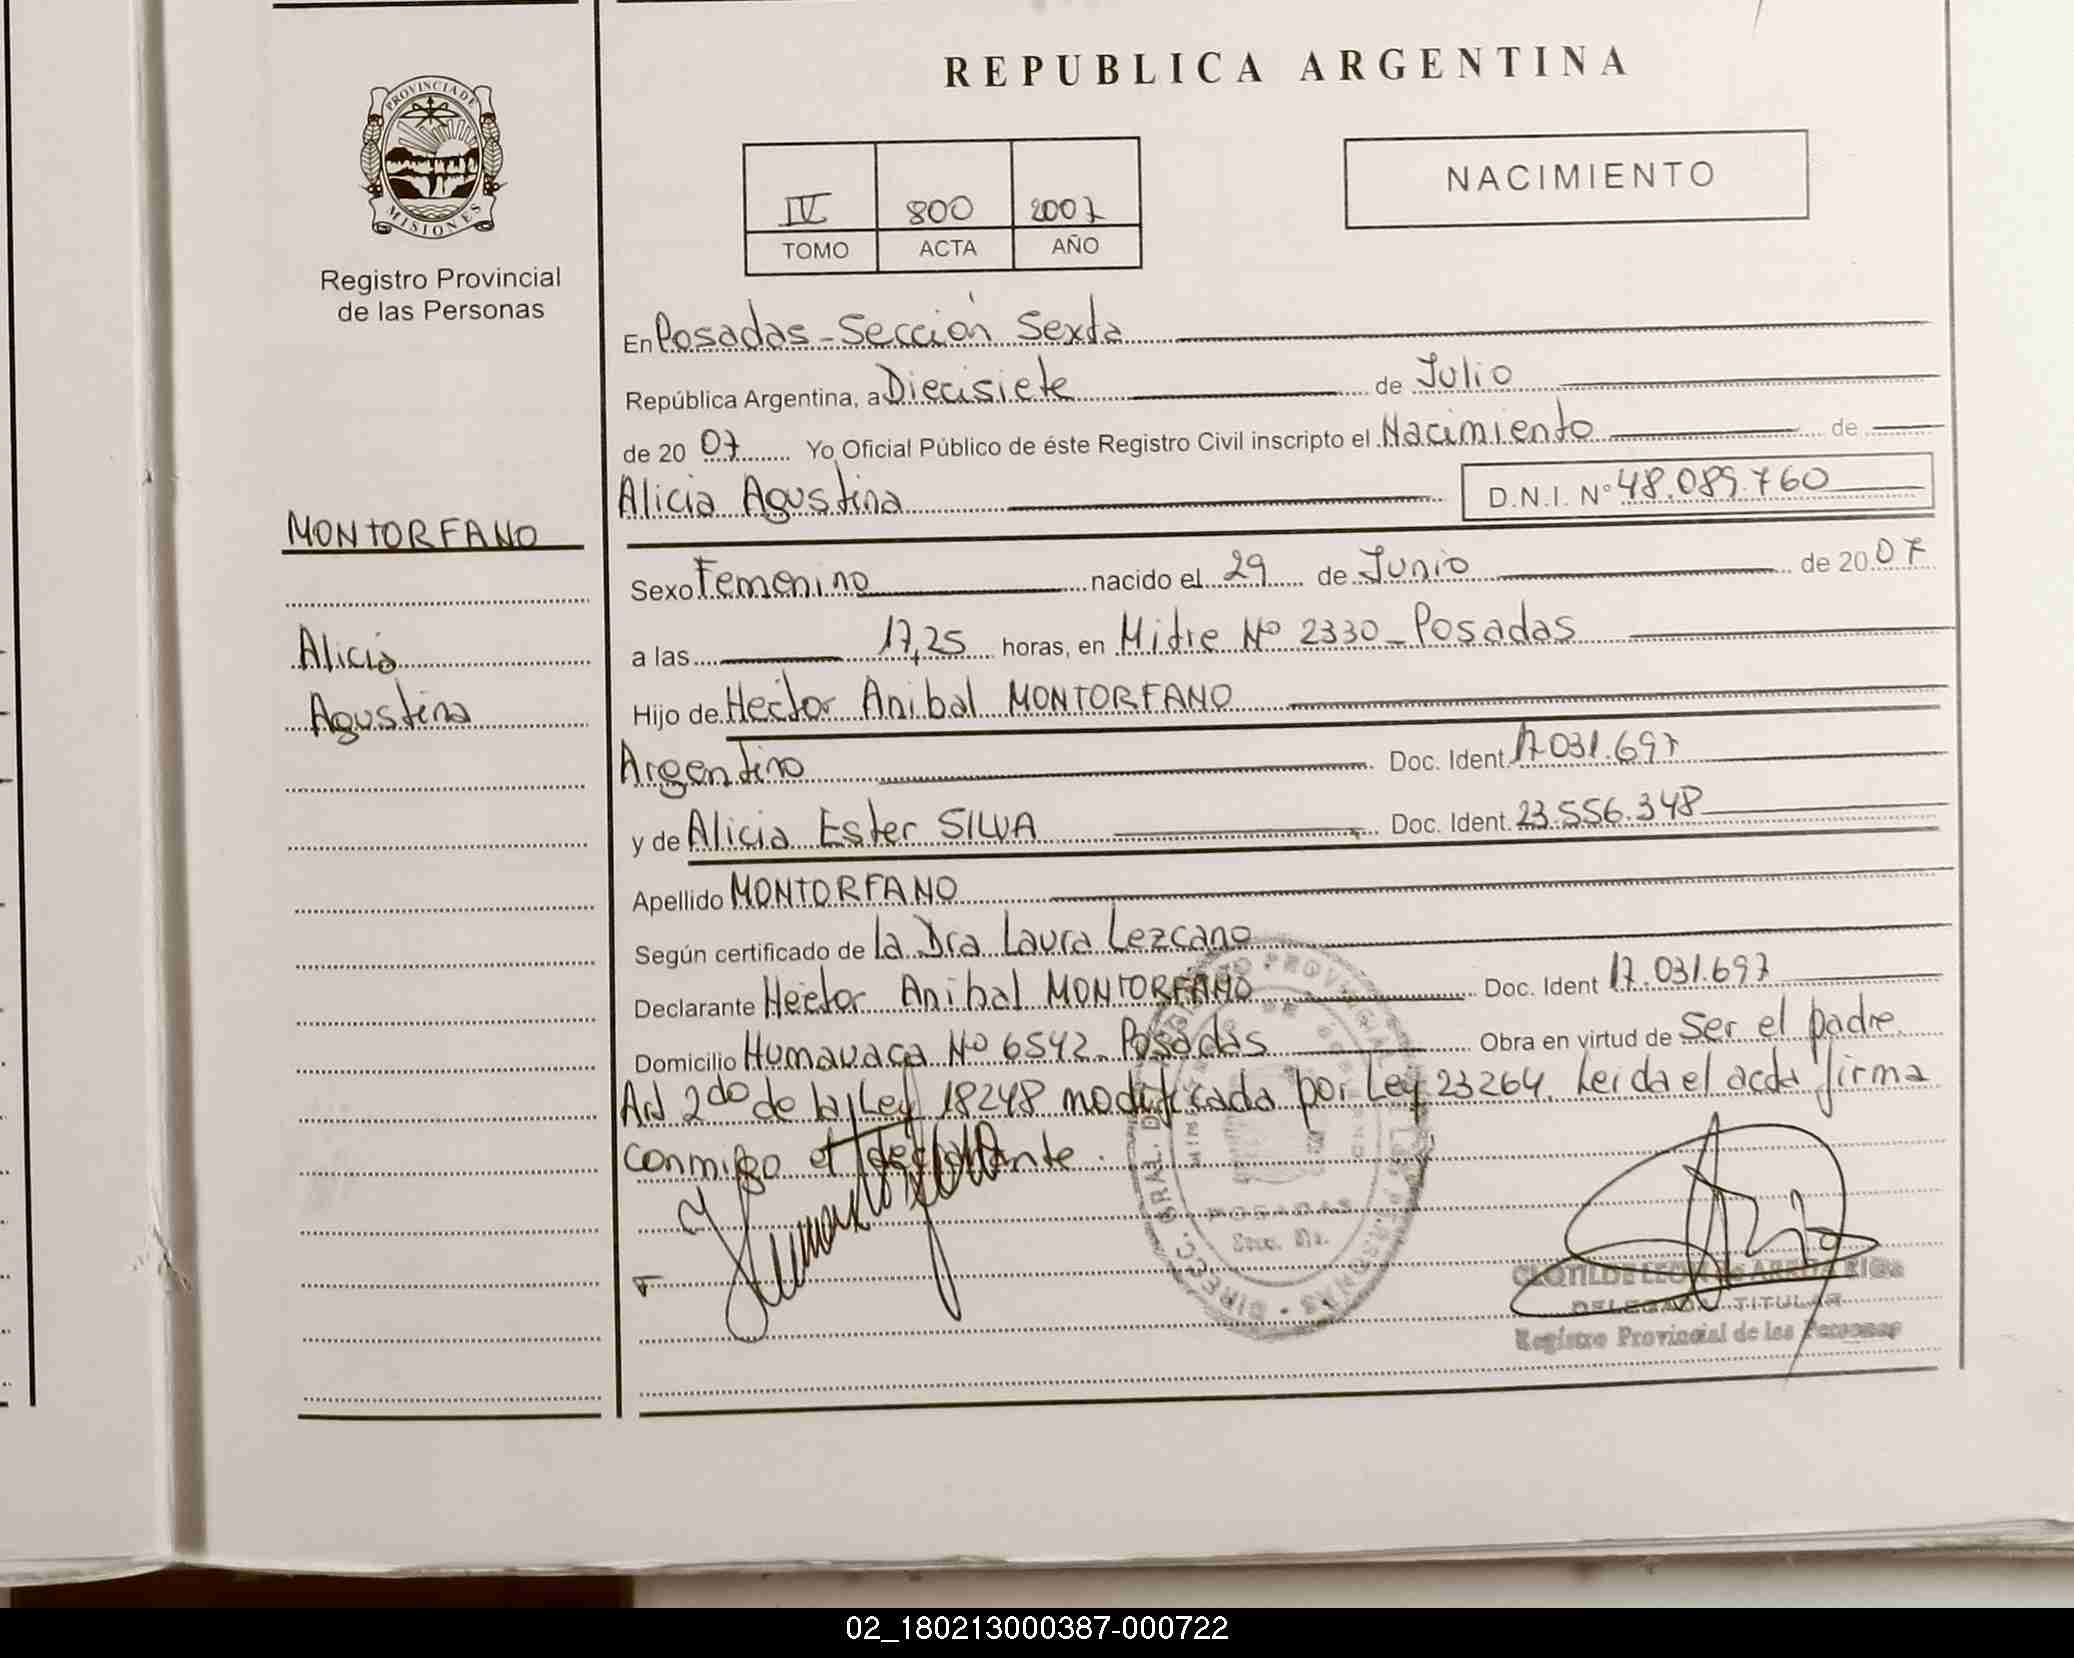 REPUBLICA ARGENTINA
PROVINCIA DE
MISIONES
Registro Provincial
de las Personas
NACIMIENTO
IV 800 2007
TOMO ACTA AÑO
En Posadas - Sección Sexta
República Argentina, a Diecisiete de Julio
de 2007 Yo Oficial Público de éste Registro Civil inscripto el Nacimiento de
Alicia Agustina D.N.I. Nº 48.089.760
MONTORFANO
Alicia
Agustina
Sexo Femenino nacido el 29 de Junio de 2007
a las 17,25 horas, en Mitre Nº 2330 - Posadas
Hijo de Hector Anibal MONTORFANO
Argentino Doc. Ident. 17.031.697
y de Alicia Ester SILVA Doc. Ident. 23.556.348
Apellido MONTORFANO
Según certificado de la Dra Laura Lezcano
Declarante Hector Anibal MONTORFANO Doc. Ident 17.031.697
Domicilio Humauaca Nº 6542 - Posadas Obra en virtud de Ser el padre
Art 2do de la Ley 18248 modificada por Ley 23264. Leida el acta firma
conmigo el declarante.
POSADAS
DELEGADA TITULAR
Registro Provincial de las Personas
02_180213000387-000722